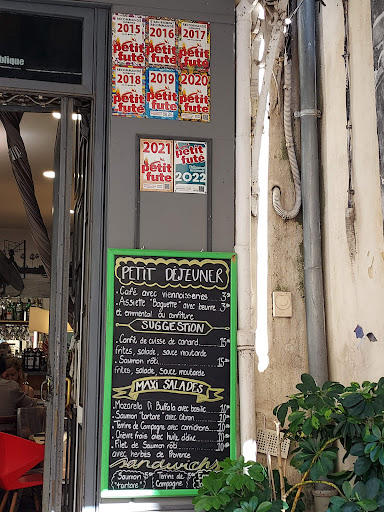 blique
2015
petit
futé
2016
petit
futé
2017
petit
futé
2018
petit
futé
2019
petit
futé
2020
petit
futé
2021
petit
futé
petit
futé
2022
PETIT DÉJEUNER
. Café avec viennoiseries
. Assiette "Baguette" avec beurre
et emmental ou confiture
SUGGESTION
. Confit de cuisse de canard
frites, salade, sauce moutarde
. Saumon rôti
frites, salade, sauce moutarde
MAXI SALADES
. Mozarella Di Buffala avec basilic
. Saumon "tartare" avec citron
. Terrine de Campagne avec cornichons
. Chèvre frais avec huile d'olive
. Filet de Saumon rôti
avec herbes de Provence
Sandwichs
Saumon
"tartare"
Terrine de
Campagne